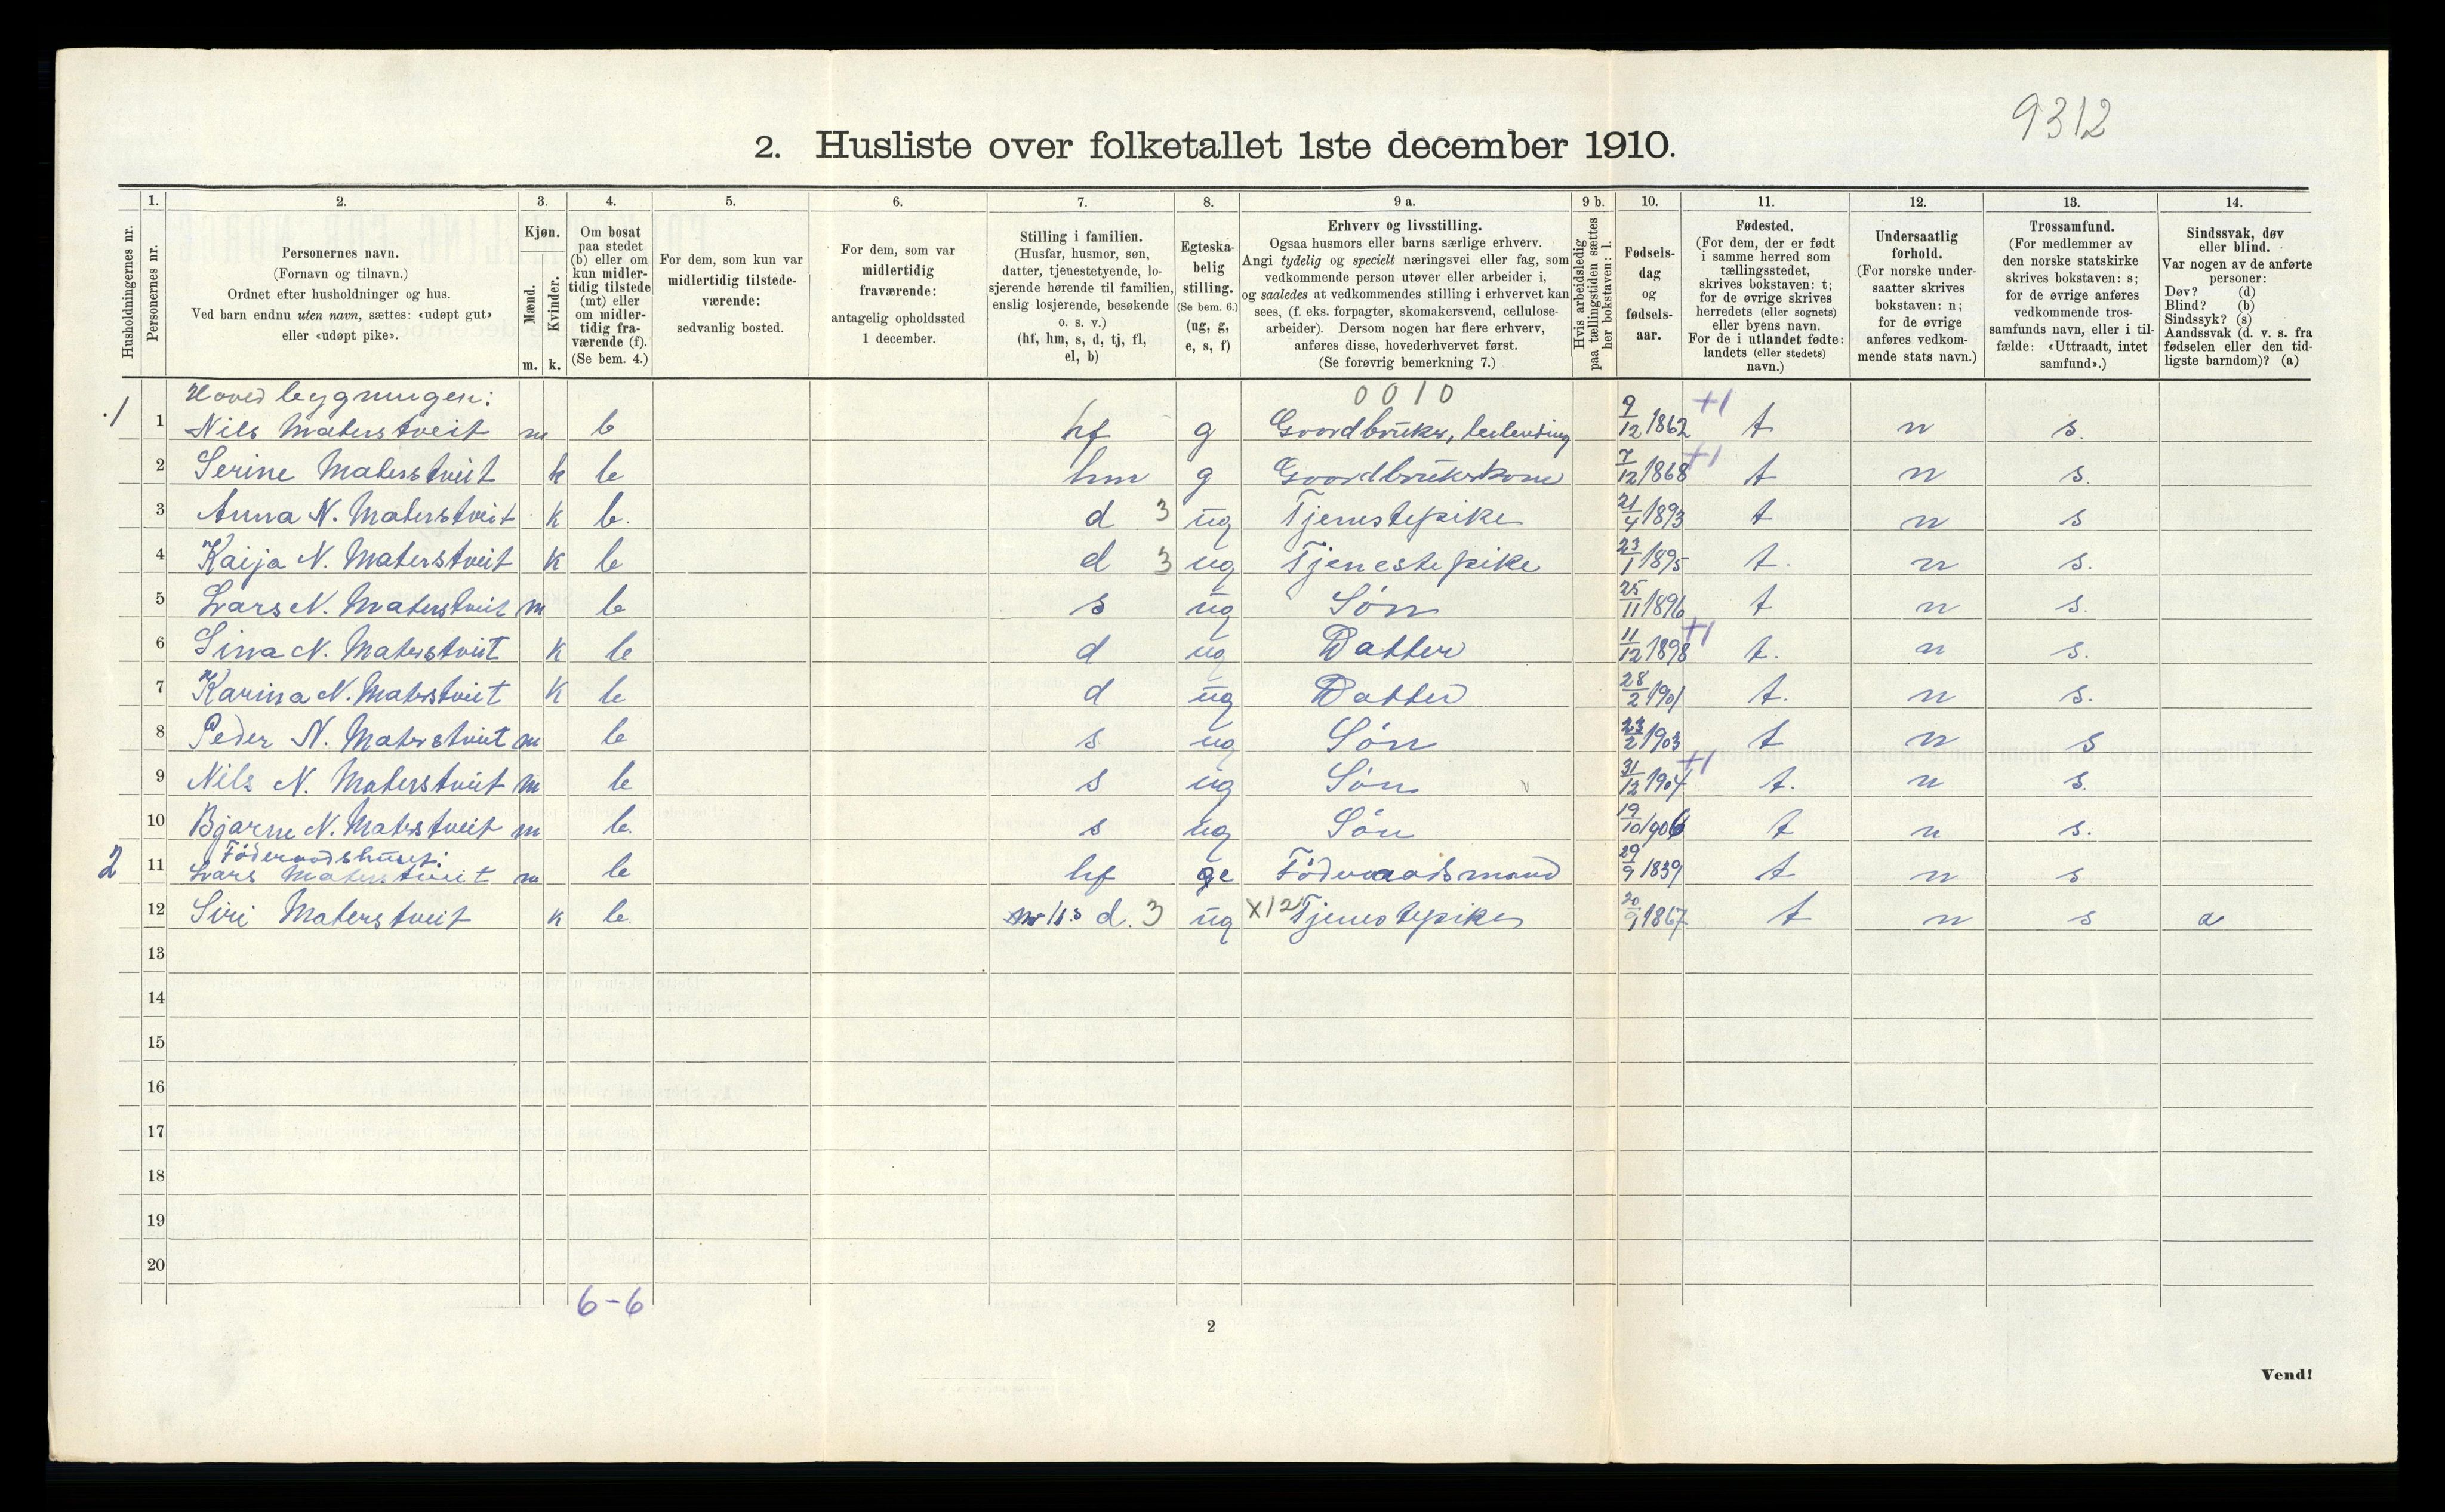 9312
2. Husliste over folketallet 1ste december 1910.
1. 2. 3. 4. 5. 6. 7. 8. 9 a. 9 b. 10. 11. 12. 13. 14.
Husholdningernes nr.
Personernes nr.
Personernes navn.
(Fornavn og tilnavn.)
Ordnet efter husholdninger og hus.
Ved barn endnu uten navn, sættes: «udøpt gut»
eller «udøpt pike».
Kjøn.
Mænd.
Kvinder.
m. k.
Om bosat
paa stedet
(b) eller om
kun midler-
tidig tilstede
(mt) eller
om midler-
tidig fra-
værende (f).
(Se bem. 4.)
For dem, som kun var
midlertidig tilstede-
værende:
sedvanlig bosted.
For dem, som var
midlertidig
fraværende:
antagelig opholdssted
1 december.
Stilling i familien.
(Husfar, husmor, søn,
datter, tjenestetyende, lo-
sjerende hørende til familien,
enslig losjerende, besøkende
o. s. v.)
(hf, hm, s, d, tj, fl,
el, b)
Egteska-
belig
stilling.
(Se bem. 6.)
(ug, g,
e, s, f)
Erhverv og livsstilling.
Ogsaa husmors eller barns særlige erhverv.
Angi tydelig og specielt næringsvei eller fag, som
vedkommende person utøver eller arbeider i,
og saaledes at vedkommendes stilling i erhvervet kan
sees, (f. eks. forpagter, skomakersvend, cellulose-
arbeider). Dersom nogen har flere erhverv,
anføres disse, hovederhvervet først.
(Se forøvrig bemerkning 7.)
Hvis arbeidsledig
paa tællingstiden sættes
her bokstaven: l.
Fødsels-
dag
og
fødsels-
aar.
Fødested.
(For dem, der er født
i samme herred som
tællingsstedet,
skrives bokstaven: t;
for de øvrige skrives
herredets (eller sognets)
eller byens navn.
For de i utlandet fødte:
landets (eller stedets)
navn.)
Undersaatlig
forhold.
(For norske under-
saatter skrives
bokstaven: n;
for de øvrige
anføres vedkom-
mende stats navn.)
Trossamfund.
(For medlemmer av
den norske statskirke
skrives bokstaven: s;
for de øvrige anføres
vedkommende tros-
samfunds navn, eller i til-
fælde: «Uttraadt, intet
samfund».)
Sindssvak, døv
eller blind.
Var nogen av de anførte
personer:
Døv? (d)
Blind? (b)
Sindssyk? (s)
Aandssvak (d. v. s. fra
fødselen eller den tid-
ligste barndom)? (a)
Hovedbygningen: 0010
1 1 Nils Materstveit m b hf g Gaardbruker, 9/12 1862 +1 t n s.
2 Serine Materstveit k b hm g Gaardbrukerkone 7/12 1868 +1 t n s.
3 Anna N. Materstveit k b. d 3 ug Tjenestepike 21/4 1893 t n s
4 Kaija N. Materstveit k b d 3 ug Tjenestepike 23/1 1895 t. n s.
5 Lars N. Materstveit m b s ug Søn 25/11 1896 t n s.
6 Sina N. Materstveit k b d ug Datter 11/12 1898 +1 t. n s.
7 Karina N. Materstveit k b d ug Datter 28/2 1901 t. n s.
8 Peder N. Materstveit m b s ug Søn 23/2 1903 t n s
9 Nils N. Materstveit m b s ug Søn 31/12 1904 +1 t. n s.
10 Bjarne N. Materstveit m b. s ug Søn 19/10 1906 t n s.
Föderaadshuset:
2 11 Lars Materstveit m b hf ge Föderaadsmand 29/9 1839 t n s
12 Siri Materstveit k b. nr 11s d. 3 ug X12 Tjenestepike 20/9 1867 t n s a
13
14
15
16
17
18
19
20
6-6
2
Vend!